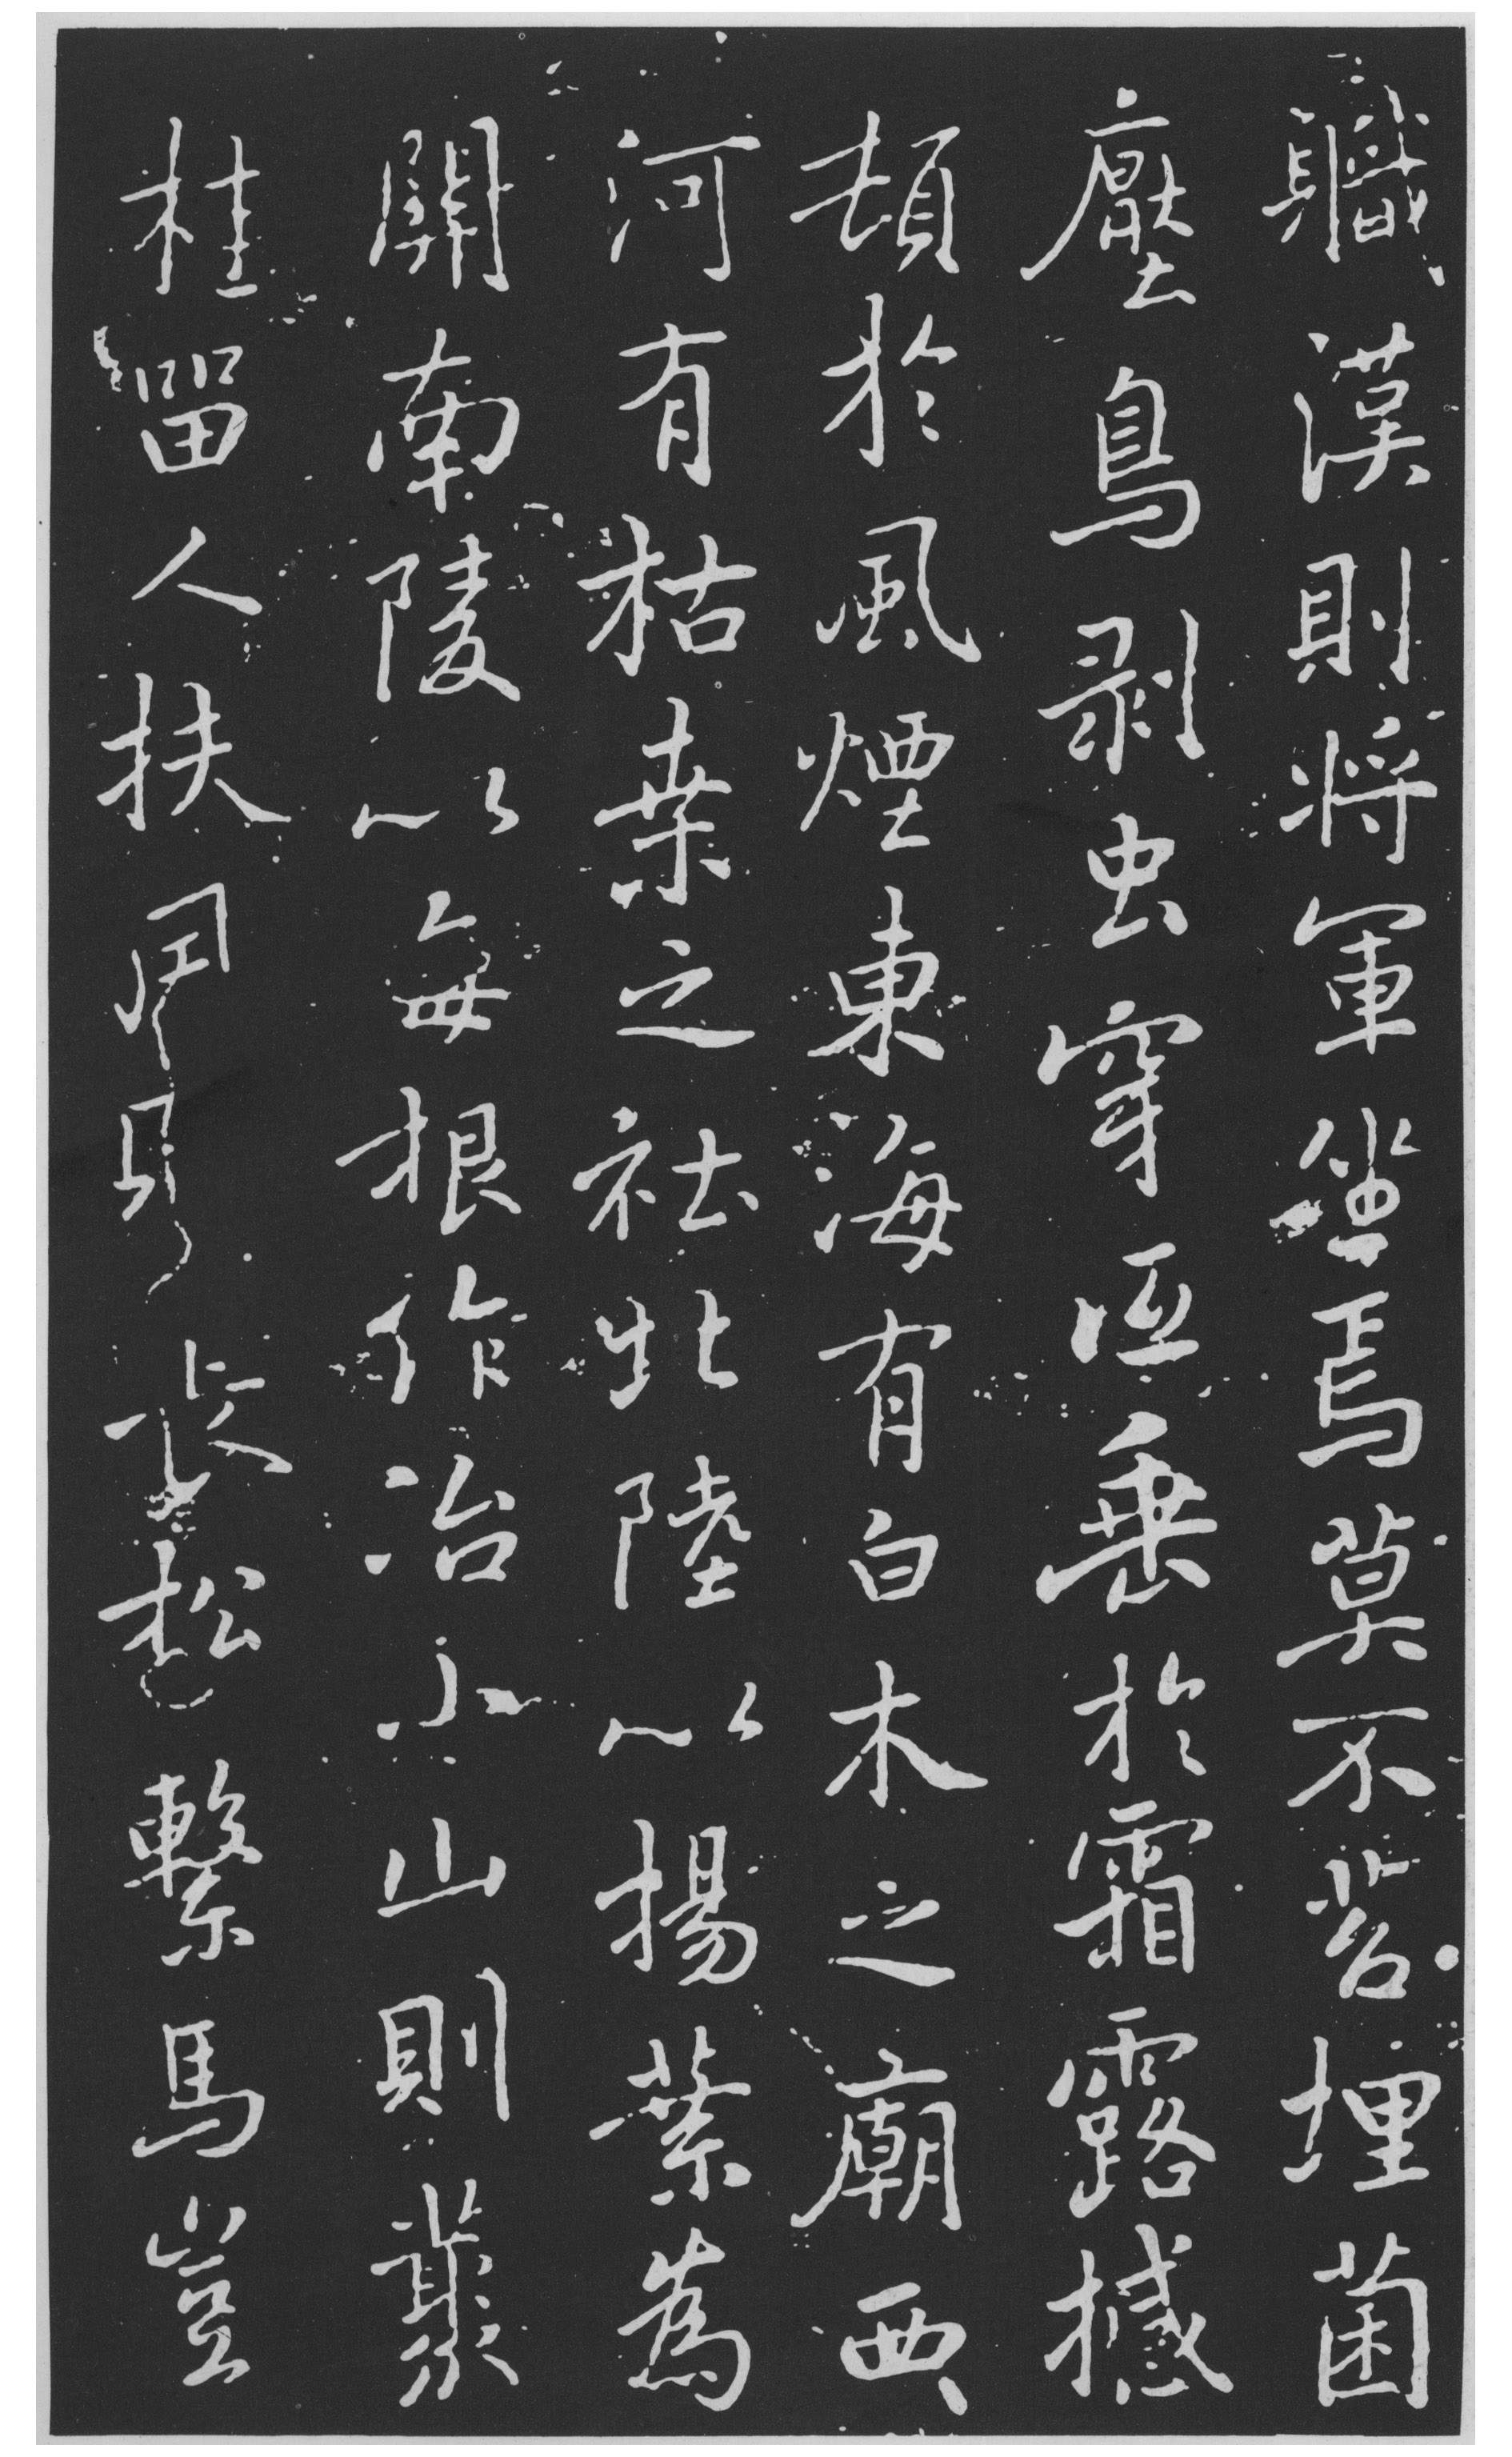 職漢則将軍坐焉莫不苔埋菌
壓鳥剥虫穿低垂於霜露撼
頓於風煙東海有白木之廟西
河有枯桒之社北陸以揚葉為
關南陵以每根作冶小山則叢
桂留人扶長松繫馬豈